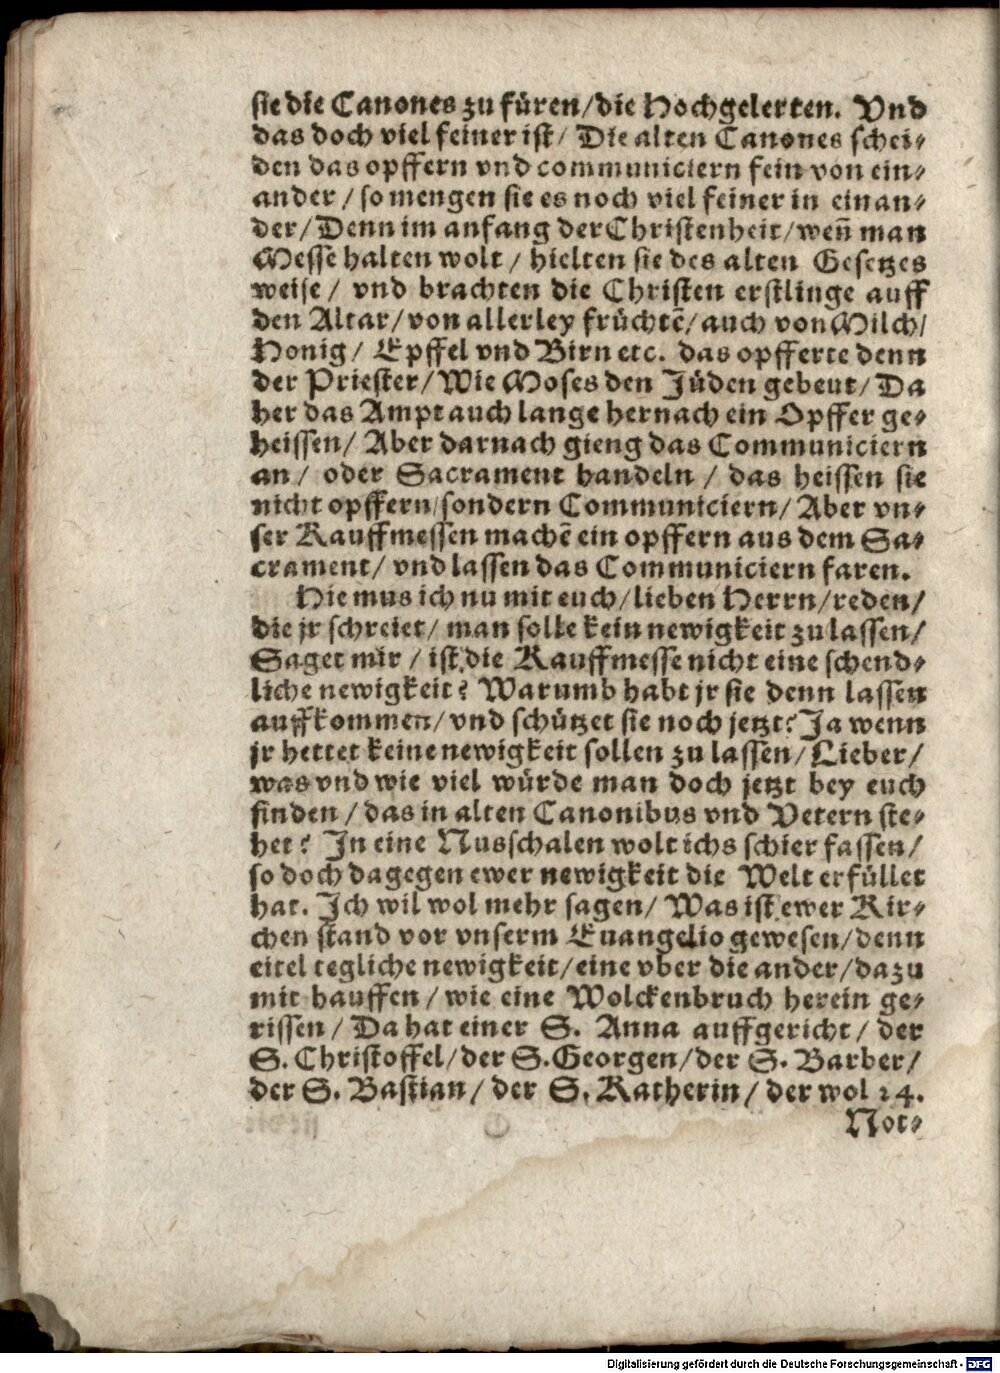 sie die Canones zu füren/die Hochgelerten. Vnd
das doch viel feiner ist/ Die alten Canones schei⸗
den das opffern vnd communiciern fein von ein⸗
ander / so mengen sie es noch viel feiner in einan⸗
der/ Denn im anfang der Christenheit/ weñ man
Messe halten wolt / hielten sie des alten Gesetzes
weise / vnd brachten die Christen erstlinge auff
den Altar/ von allerley früchtē/ auch von Milch/
Honig/ Epffel vnd Birn etc. das opfferte denn
der Priester/ Wie Moses den Jüden gebeut/ Da
her das Ampt auch lange hernach ein Opffer ge⸗
heissen/ Aber darnach gieng das Communiciern
an / oder Sacrament handeln / das heissen sie
nicht opffern/ sondern Communiciern/ Aber vn⸗
ser Kauffmessen machē ein opffern aus dem Sa⸗
crament/ vnd lassen das Communiciern faren.
Hie mus ich nu mit euch/ lieben Herrn/ reden/
die jr schreiet/ man solle kein newigkeit zu lassen/
Saget mir / ist die Kauffmesse nicht eine schend⸗
liche newigkeit? Warumb habt jr sie denn lassen
auffkommen/ vnd schützet sie noch jetzt? Ja wenn
jr hettet keine newigkeit sollen zu lassen/ Lieber/
was vnd wie viel würde man doch jetzt bey euch
finden / das in alten Canonibus vnd Vetern ste⸗
het? In eine Nusschalen wolt ichs schier fassen/
so doch dagegen ewer newigkeit die Welt erfüllet
hat. Ich wil wol mehr sagen/ Was ist ewer Kir⸗
chen stand vor vnserm Euangelio gewesen/ denn
eitel tegliche newigkeit/ eine vber die ander/ dazu
mit hauffen / wie eine Wolckenbruch herein ge⸗
rissen / Da hat einer S. Anna auffgericht / der
S. Christoffel/ der S. Georgen/ der S. Barber/
der S. Bastian / der S. Katherin / der wol 24.
Not⸗
Digitalisierung gefördert durch die Deutsche Forschungsgemeinschaft - DFG